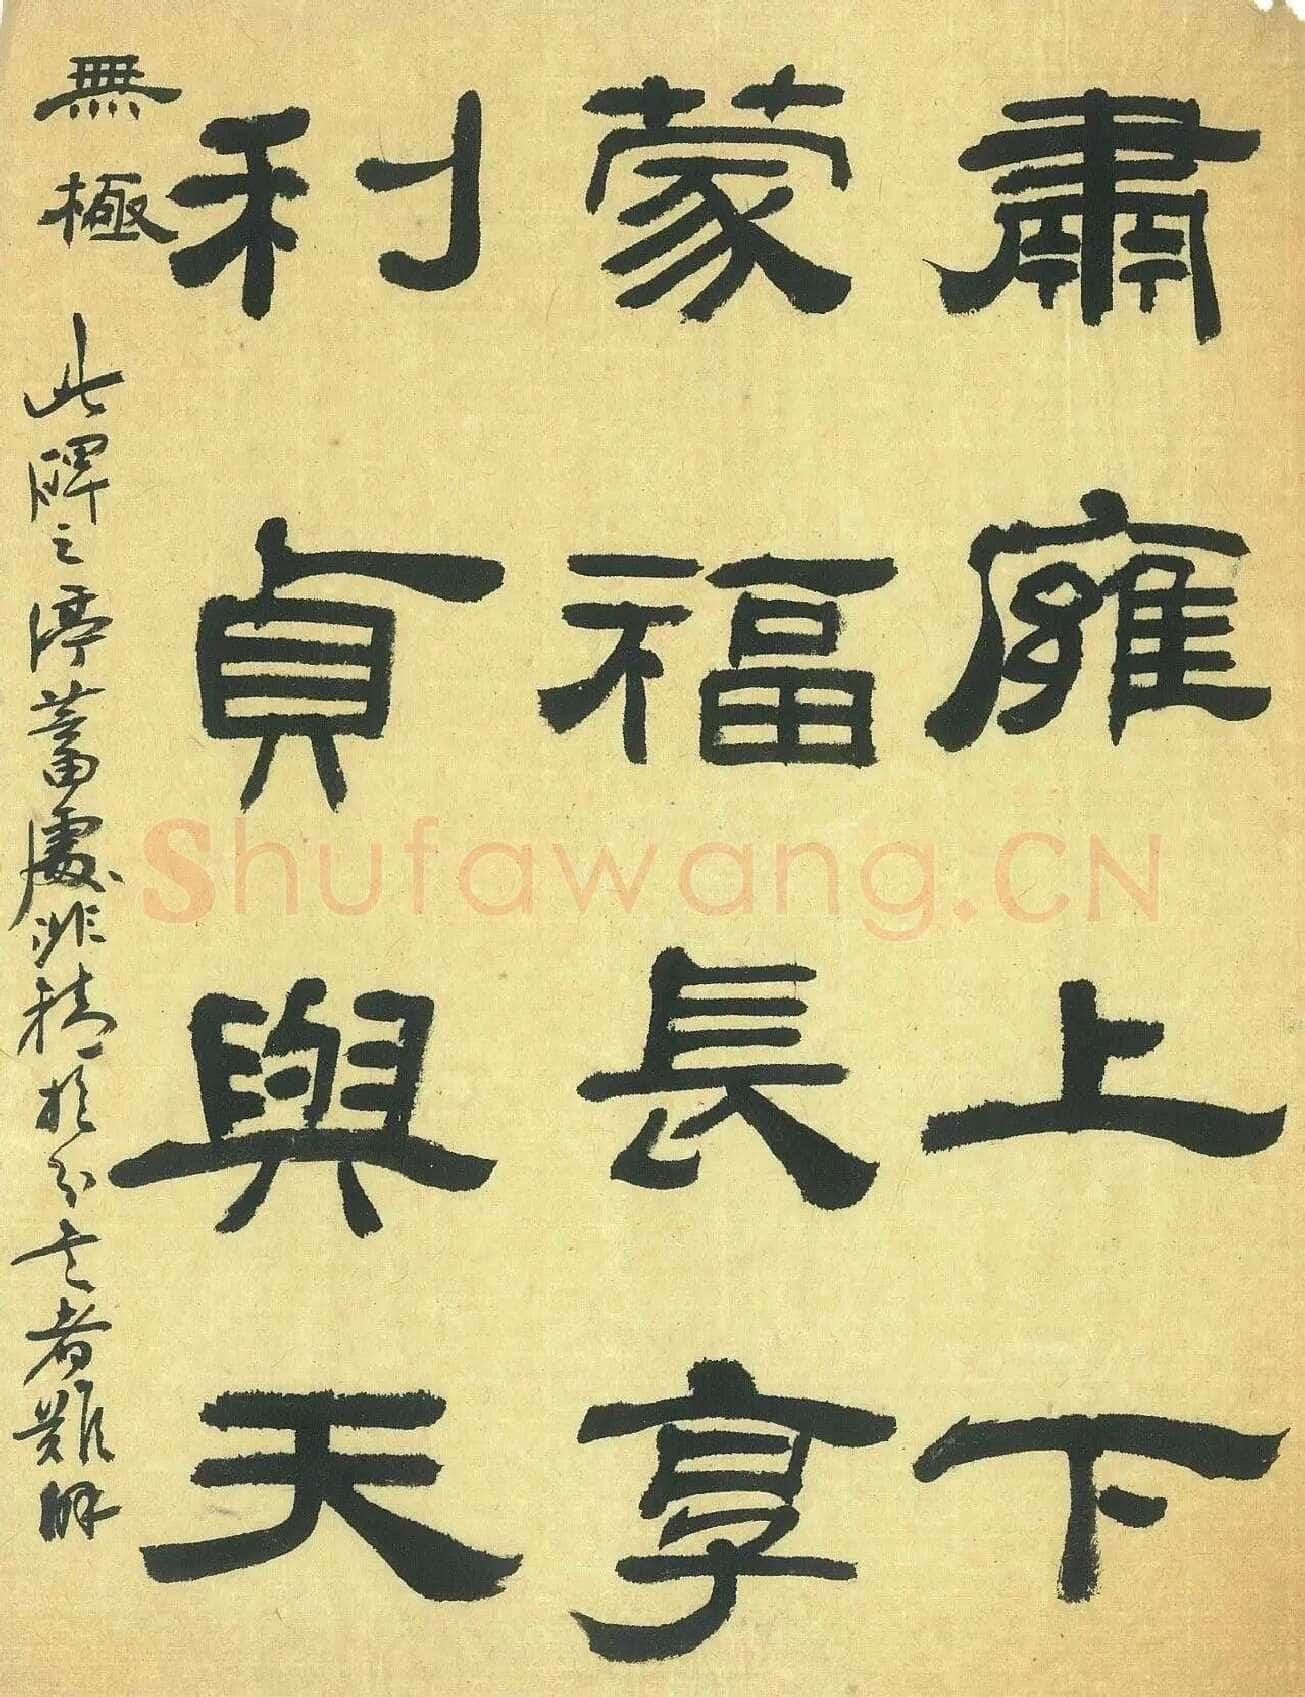 肅雍上下
蒙福長享
利貞與天
無極
此碑之渟蓄處非精於分書者難解
Shufawang.CN